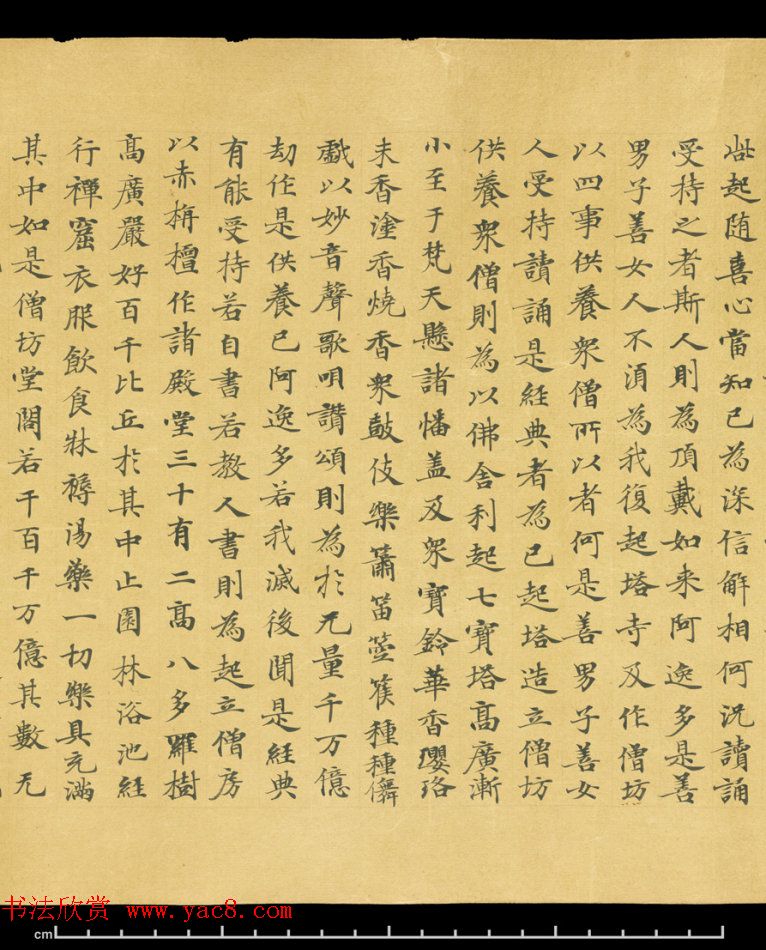 毀呰起随喜心當知已為深信解相何況讀誦
受持之者斯人則為頂戴如来阿逸多是善
男子善女人不湏為我復起塔寺及作僧坊
以四事供養衆僧所以者何是善男子善女
人受持讀誦是經典者為已起塔造立僧坊
供養衆僧則為以佛舎利起七寶塔髙廣漸
小至于梵天懸諸幡盖及衆寶鈴華香瓔珞
末香塗香燒香衆鼓伎樂簫笛箜篌種種儛
戲以妙音聲歌唄讃頌則為於无量千万億
劫作是供養已阿逸多若我滅後聞是經典
有能受持若自書若教人書則為起立僧房
以赤栴檀作諸殿堂三十有二髙八多羅樹
髙廣嚴好百千比丘於其中止園林浴池経
行禪窟衣服飲食牀褥湯藥一切樂具充滿
其中如是僧坊堂閣若干百千万億其數无
书法欣赏 www.yac8.com
cm